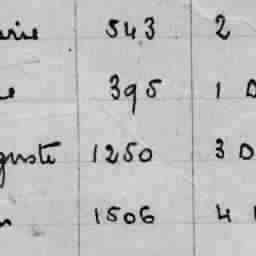 erie 543 2
e 395 1 D
guste 1250 3 D
n 1506 4